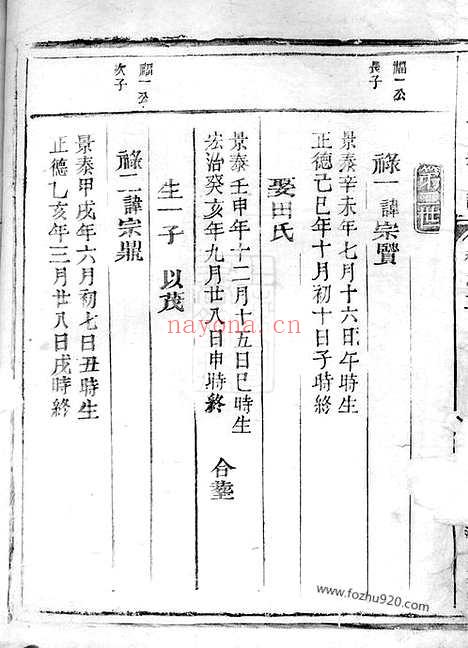 福一公
長子
第三世
祿一諱宗賢
景泰辛未年七月十六日午時生
正德己巳年十月初十日子時終
娶田氏
景泰壬申年十二月十五日巳時生
宏治癸亥年九月廿八日申時終 合塟
生一子 以茂
福一公
次子
祿二諱宗鼎
景泰甲戌年六月初七日丑時生
正德乙亥年三月廿八日戌時終
nayona.cn
www.fozhu920.com